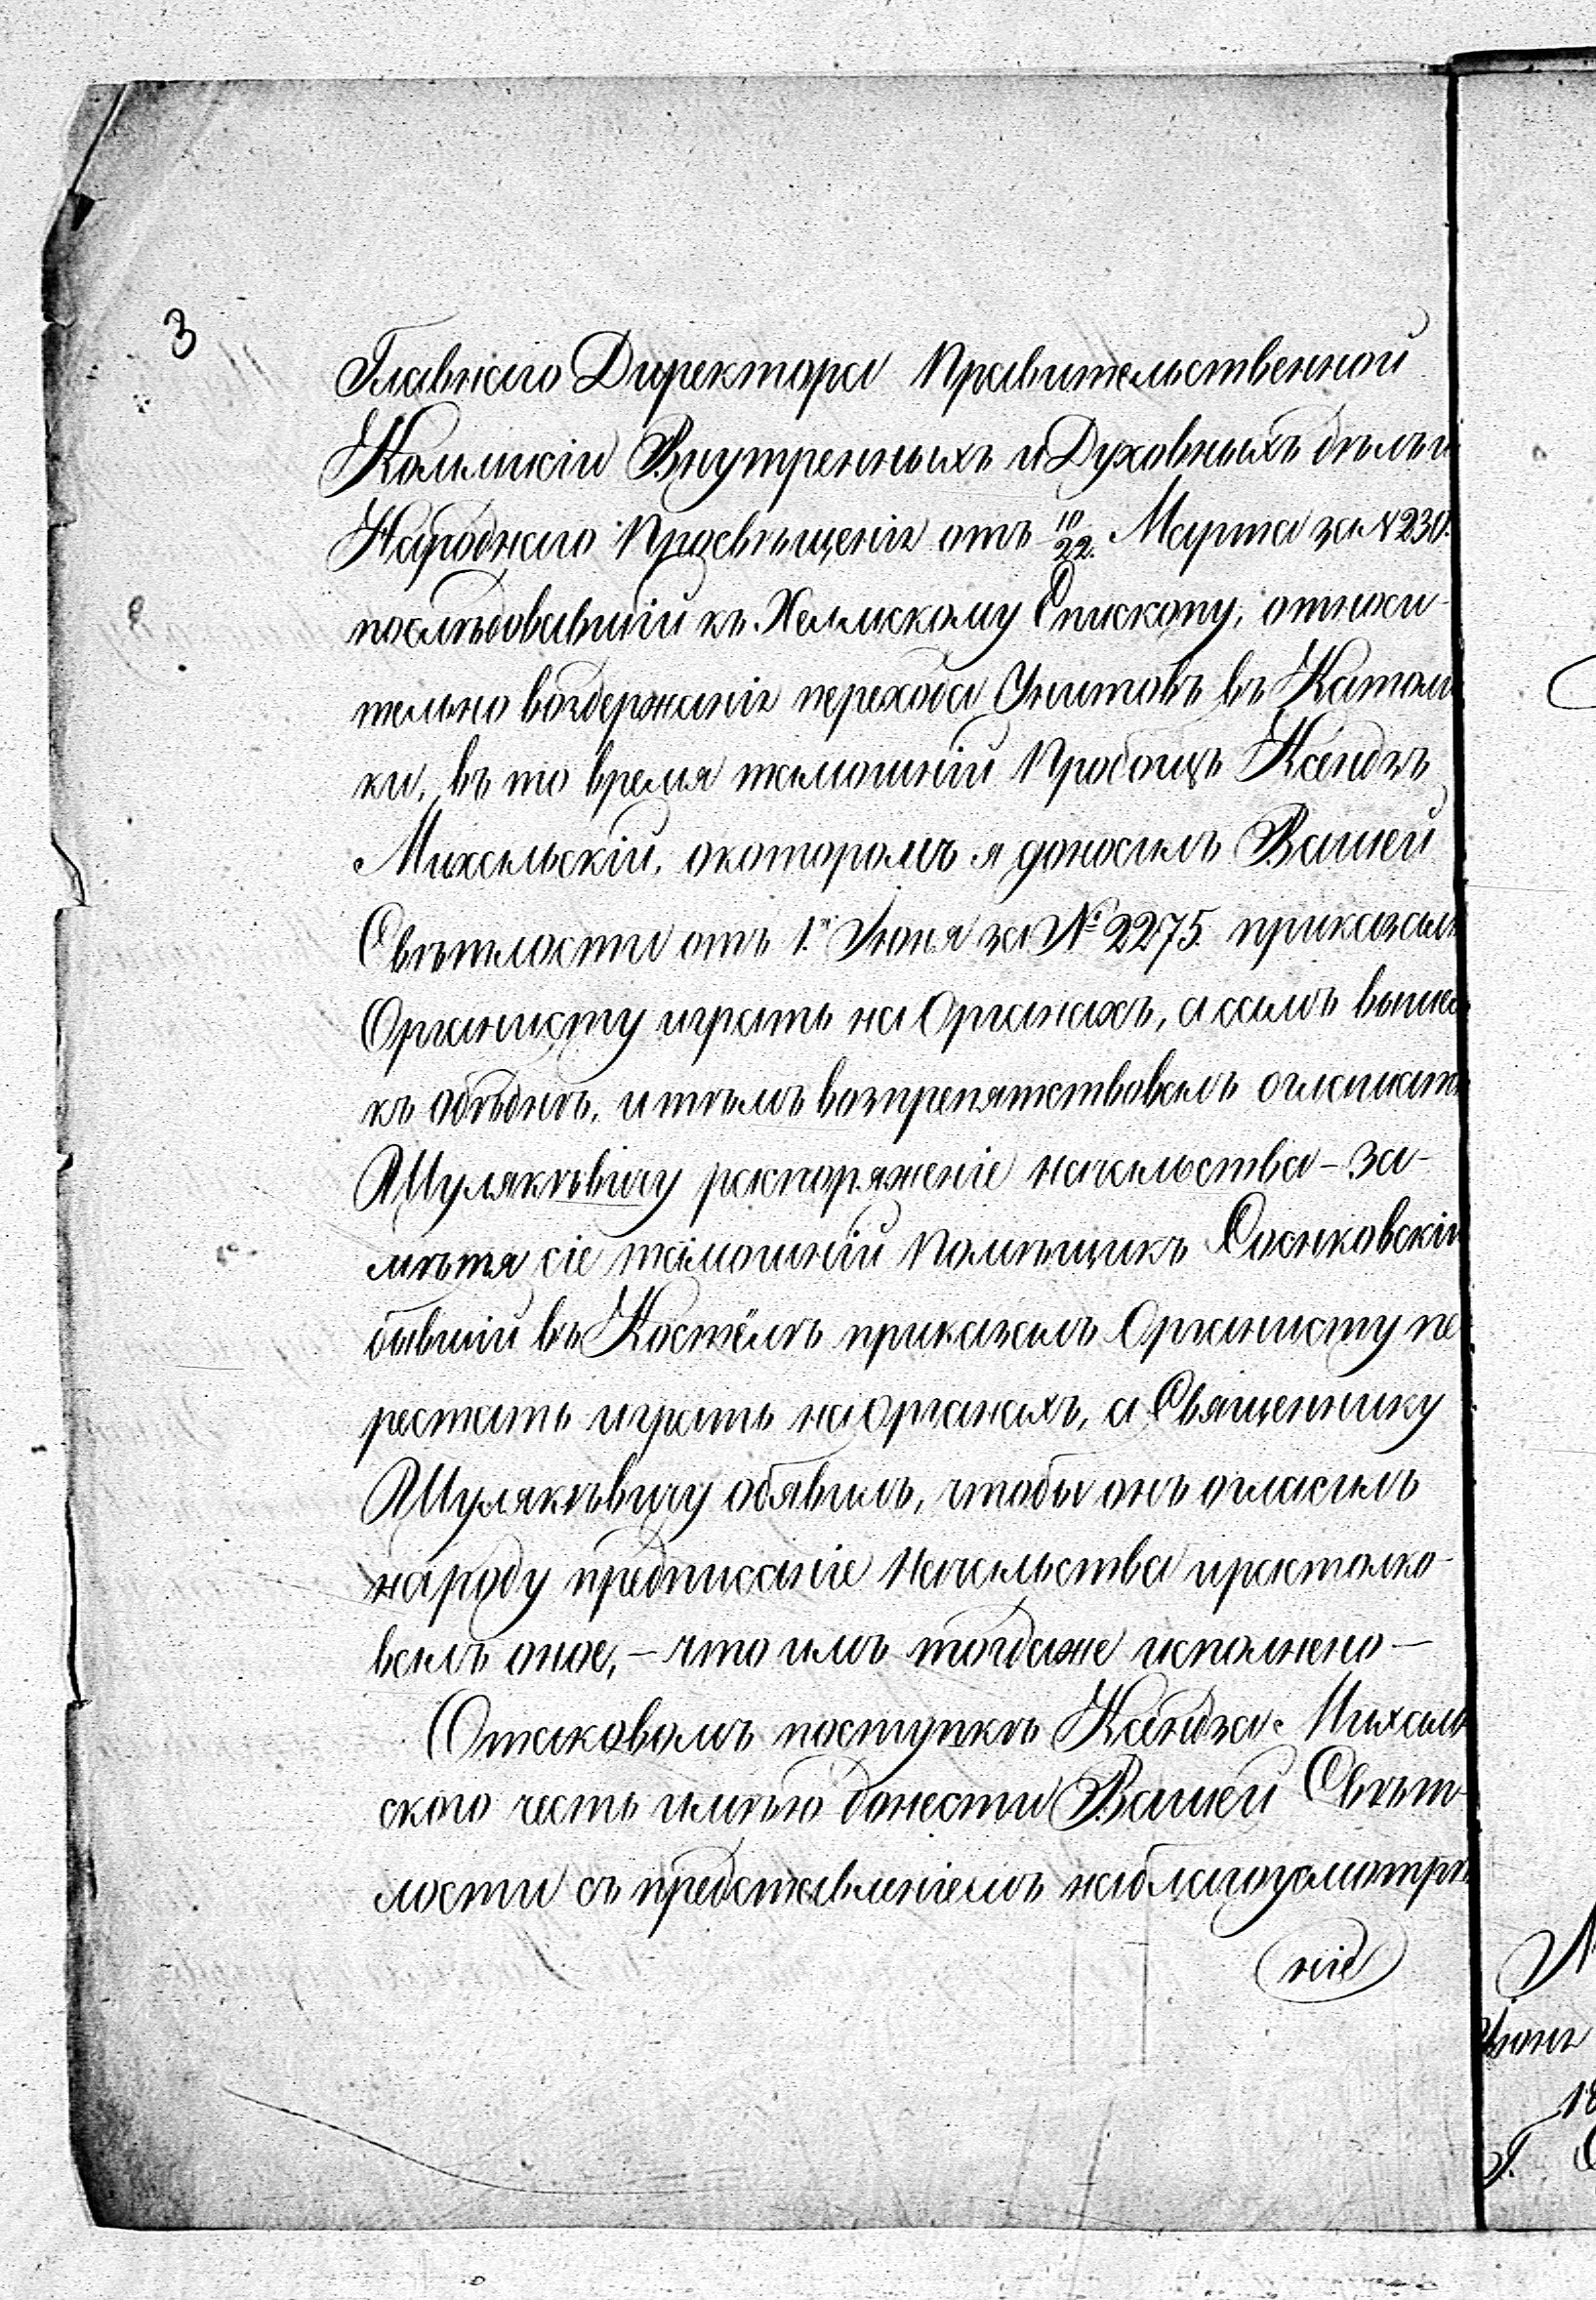 3
Главнаго Директора Правительственной
Коммисіи Внутренныхъ и Духовныхъ дѣлъ и
Народнаго Просвѣщенія отъ 10/22. Марта за № 230.
послѣдовавшій къ Хелмскому Епископу, относи-
тельно воздержанія перехода Унитовъ въ Католи
ки, въ то время тамошній Пробощъ Ксендзъ
Михальскій, о которомъ я доносилъ Вашей
Свѣтлости отъ 1.го Іюня за № 2275. приказалъ
Органисту играть на Органахъ, а самъ вышелъ
къ Обѣднѣ, и тѣмъ возпрепятствовалъ огласить
Шулякѣвичу распоряженіе начальства – за-
мѣтя сіе тамошній Помѣщикъ Соснковскій
бывшій въ Костёлѣ приказалъ Органисту пе
рестать играть на Органахъ, а Священнику
Шулякѣвичу обявилъ, чтобы онъ огласилъ
народу предписаніе Начальства и растолко-
валъ оное, – что имъ тогда же исполнено –
О таковомъ поступкѣ Ксендза Михаль
ского честь имѣю донести Вашей Свѣт-
лости съ представленіемъ на благоусмотрѣ
ніе